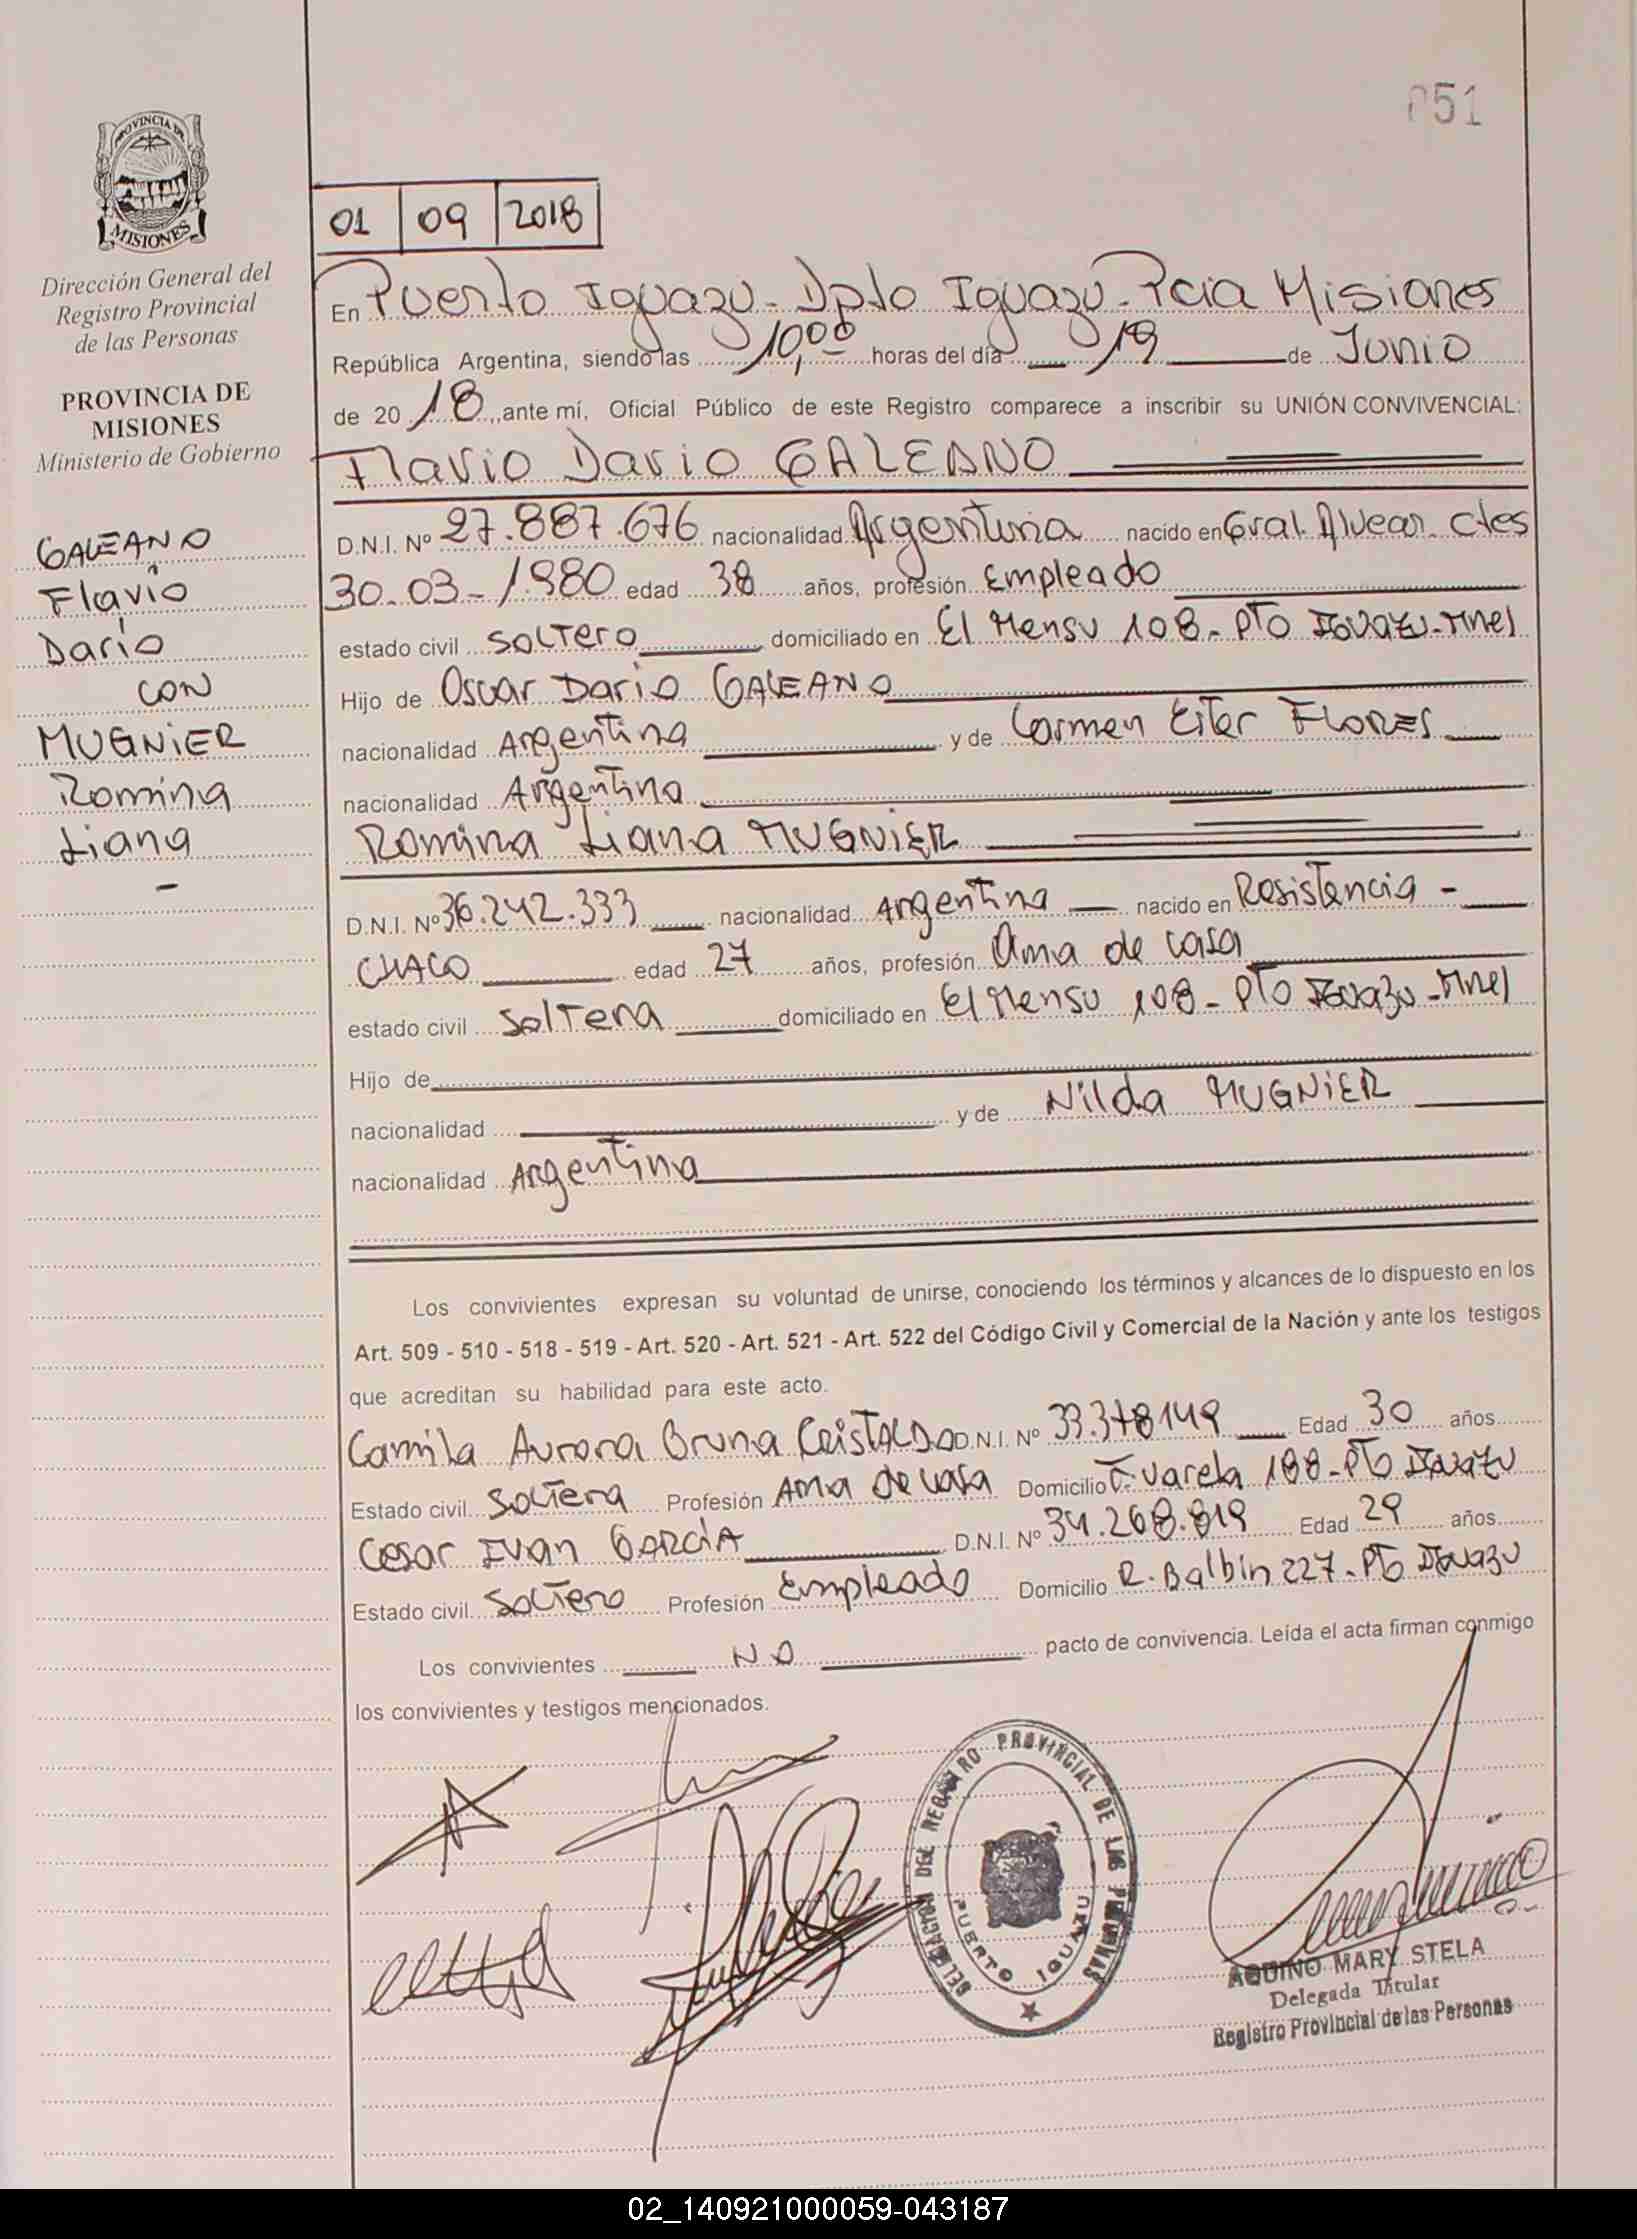 051
PROVINCIA DE
MISIONES
Dirección General del
Registro Provincial
de las Personas
PROVINCIA DE
MISIONES
Ministerio de Gobierno
GALEANO
Flavio
Dario
CON
MUGNIER
Romina
Liana
-
01 09 2018
En Puerto Iguazu - Dpto Iguazu - Pcia Misiones
República Argentina, siendo las 10,00 horas del día 19 de Junio
de 20 18, ante mí, Oficial Público de este Registro comparece a inscribir su UNIÓN CONVIVENCIAL:
Flavio Dario GALEANO
D.N.I. Nº 27.887.676 nacionalidad Argentina nacido en Gral. Alvear - Ctes
30-03-1980 edad 38 años, profesión Empleado
estado civil SOLTERO domiciliado en El Mensu 108 - PTO Iguazu - Mnes
Hijo de Oscar Dario GALEANO
nacionalidad Argentina y de Carmen Ester FLORES
nacionalidad Argentina
Romina Liana MUGNIER
D.N.I. Nº 36.242.333 nacionalidad Argentina nacido en Resistencia -
CHACO edad 27 años, profesión Ama de casa
estado civil Soltera domiciliado en El Mensu 108 - PTO Iguazu - Mnes
Hijo de
nacionalidad y de Nilda MUGNIER
nacionalidad Argentina
Los convivientes expresan su voluntad de unirse, conociendo los términos y alcances de lo dispuesto en los
Art. 509 - 510 - 518 - 519 - Art. 520 - Art. 521 - Art. 522 del Código Civil y Comercial de la Nación y ante los testigos
que acreditan su habilidad para este acto.
Camila Aurora Bruna CRISTALDO D.N.I. Nº 33.378149 Edad 30 años
Estado civil Soltera Profesión Ama de casa Domicilio F. Varela 188 - PTO Iguazu
Cesar Ivan GARCIA D.N.I. Nº 34.268.819 Edad 29 años
Estado civil Soltero Profesión Empleado Domicilio R. Balbin 227 - PTO Iguazu
Los convivientes NO pacto de convivencia. Leída el acta firman conmigo
los convivientes y testigos mencionados.
DELEGACION DEL REGISTRO PROVINCIAL DE LAS PERSONAS
PUERTO IGUAZU
AQUINO MARY STELA
Delegada Titular
Registro Provincial de las Personas
02_140921000059-043187